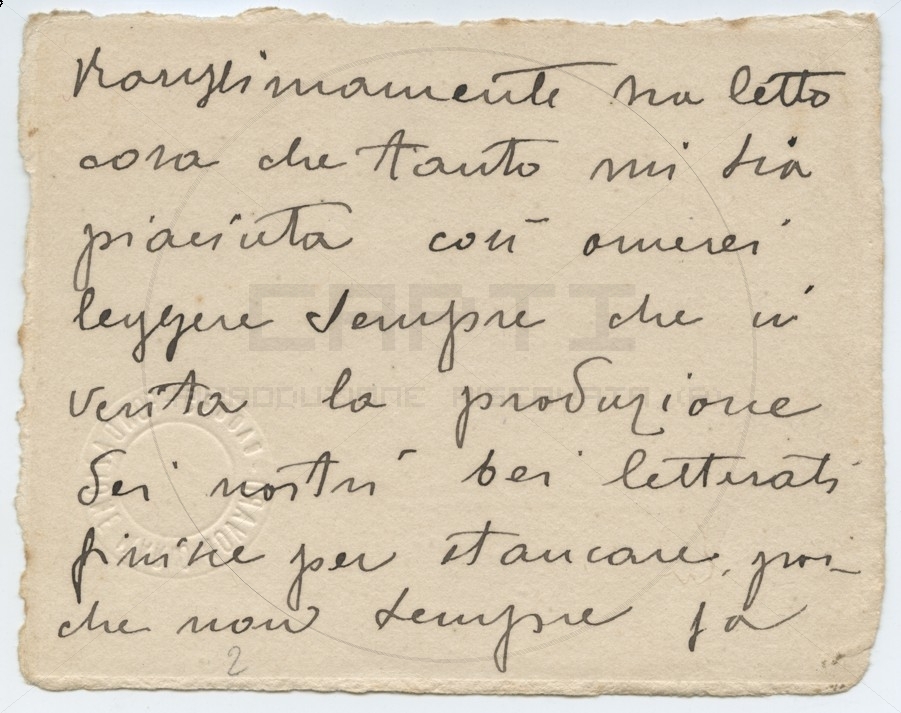 letto
cosa che tanto mi sia
piaciuta così
leggere sempre che in
verità la produzione
dei nostri bei letterati
finisce per stancare, poi-
che non sempre fa
2
CARTI
RIPRODUZIONE RISERVATA